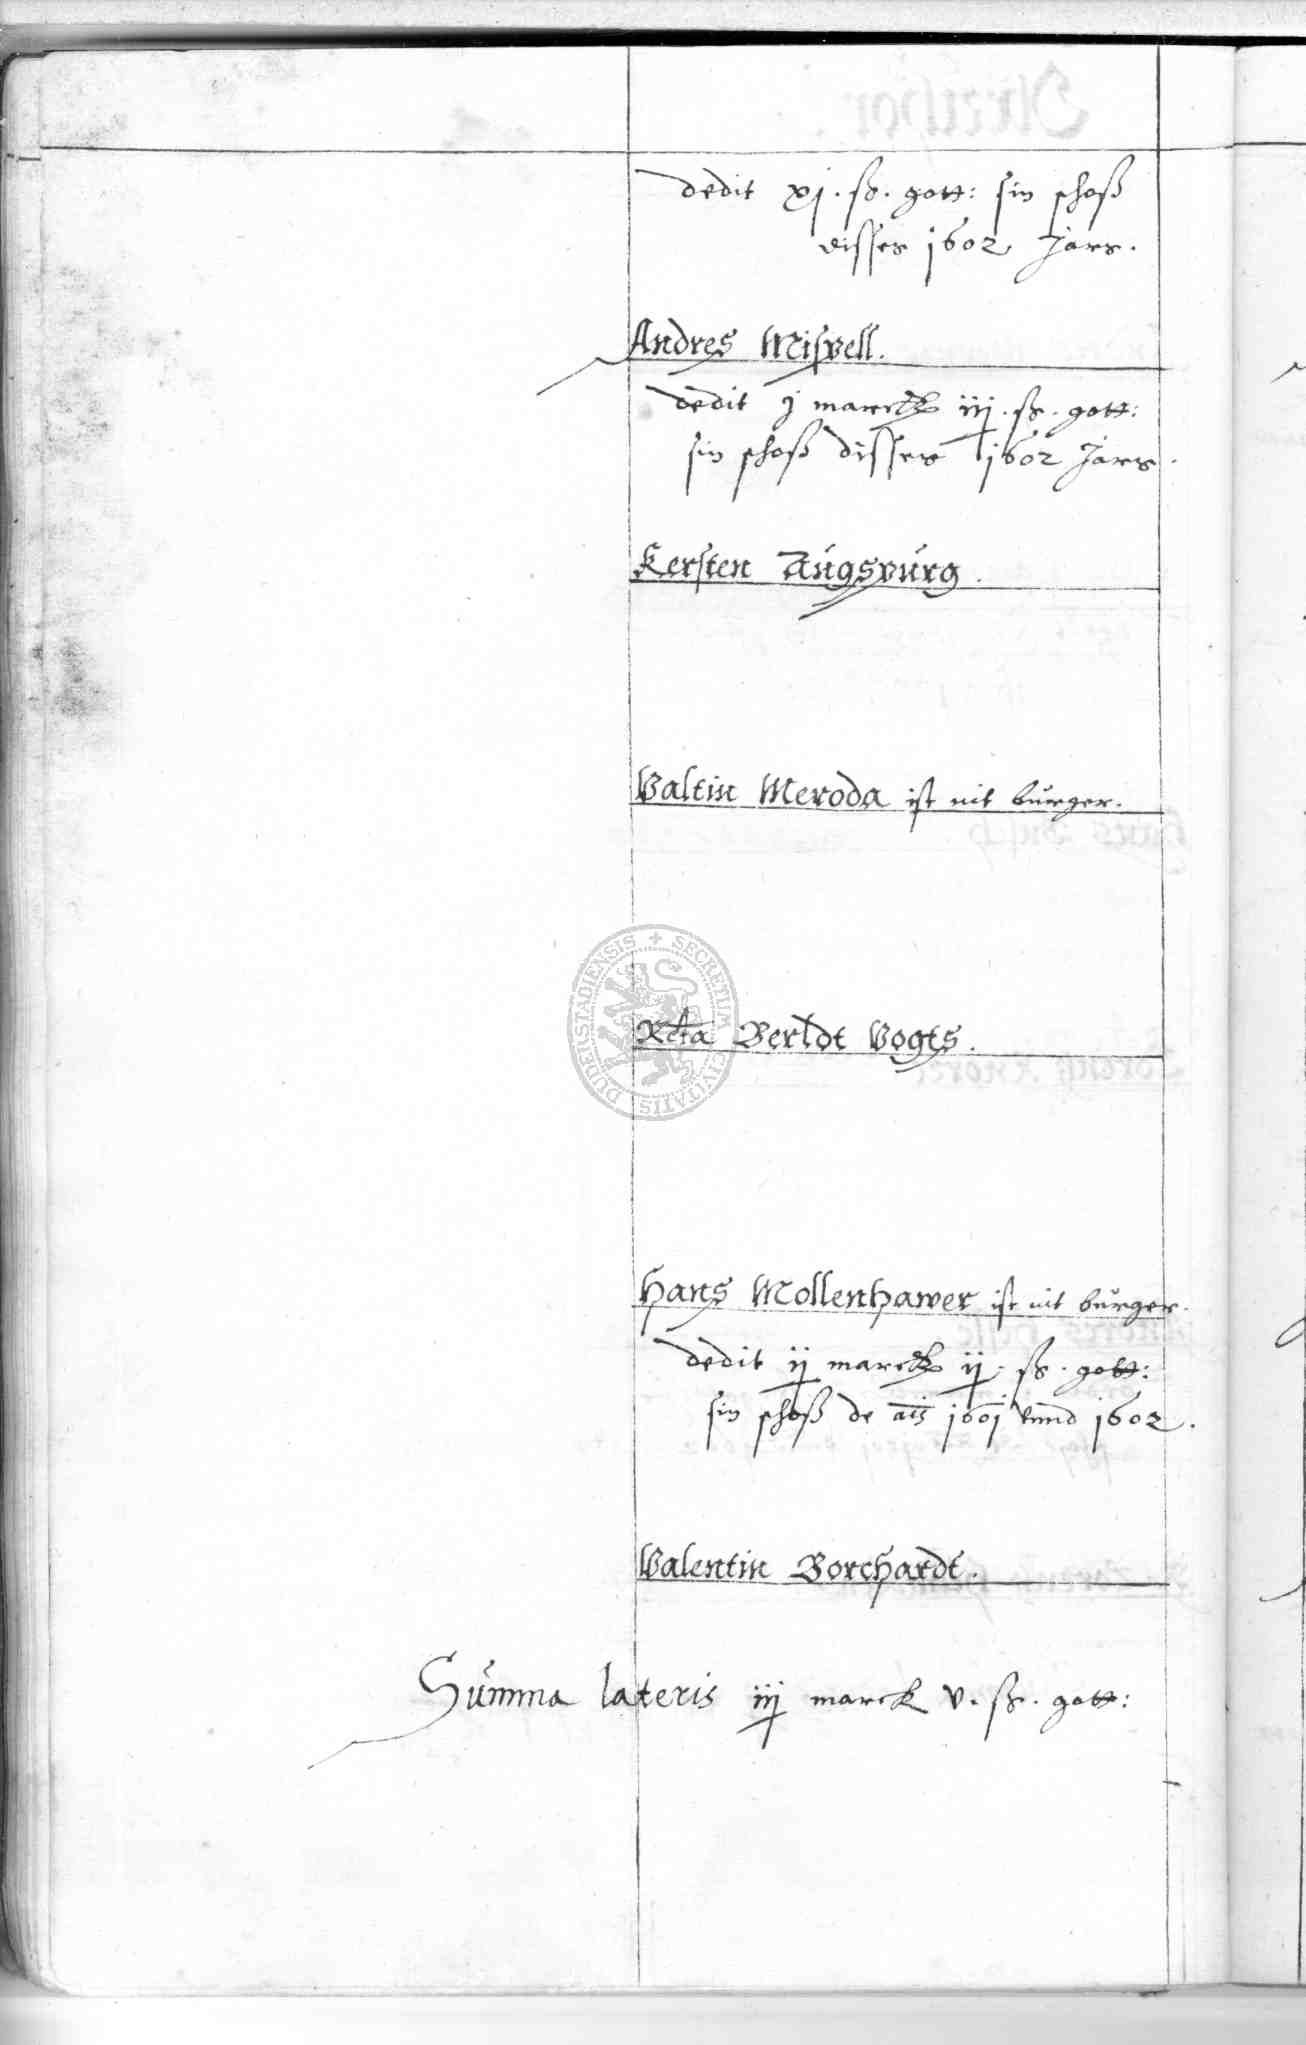 dedit xj. ß. gott: sin schoß
disses 1602 Jars.
Andres Misvell.
dedit j marck iij. ß. gott:
sin schoß disses 1602 Jars.
Kersten Augspurg.
Valtin Meroda ist nit burger.
Rcta Berldt Vogts.
Hans Mollenhawer ist nit burger.
dedit ij marck ij. ß. gott:
sin schoß de ais 1601 vnnd 1602.
Valentin Borchardt.
Summa lateris iij marck v. ß. gott:
SECRETUM CIVITATIS DUDERSTADIENSIS